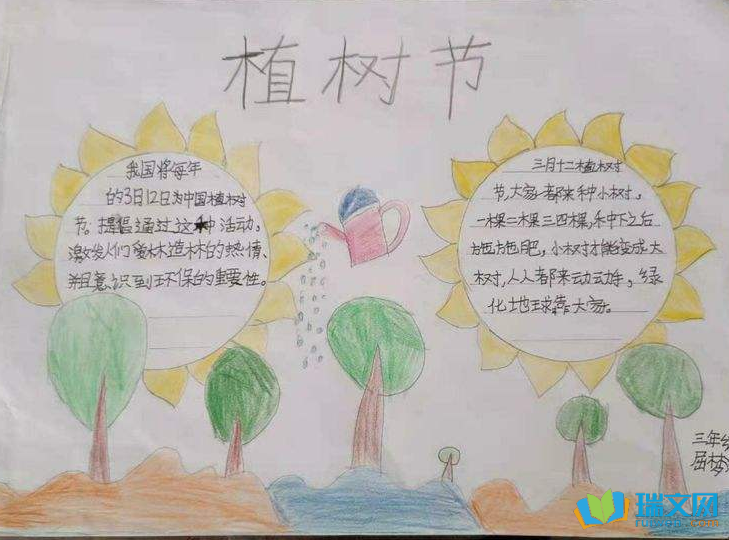 植树节
我国将每年
的3月12日为中国植树
节。提倡通过这种活动,
激发人们爱林造林的热情、
并且意识到环保的重要性。
三月十二植树
节,大家都来种小树,
一棵二棵三四棵,种下之后
施施肥,小树才能变成大
树,人人都来动动手,绿
化地球靠大家。
三年级
屈梦
瑞文网